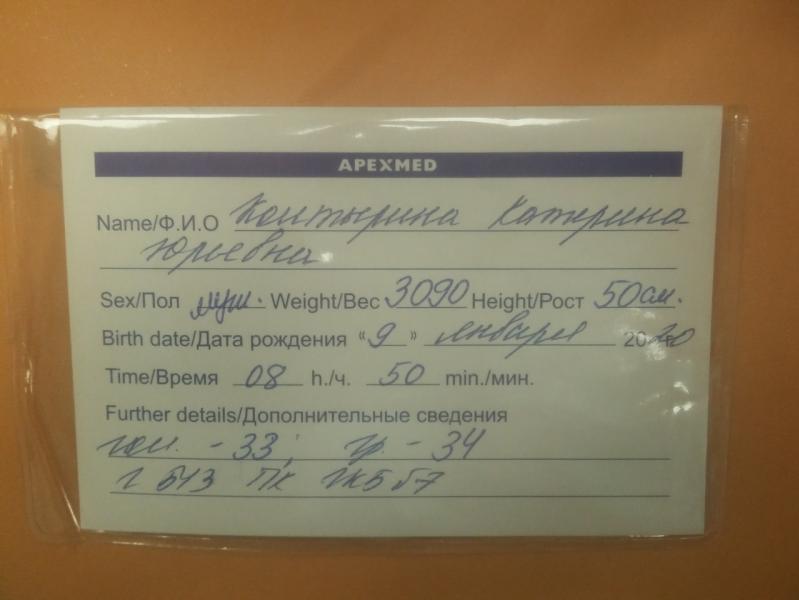 APEXMED
Name/Ф.И.О Контырина Катерина
Юрьевна
Sex/Пол муж. Weight/Вес 3090 Height/Рост 50 см.
Birth date/Дата рождения «9» января 2020
Time/Время 08 h./ч. 50 min./мин.
Further details/Дополнительные сведения
гол. - 33; гр. - 34
ГКБ 57